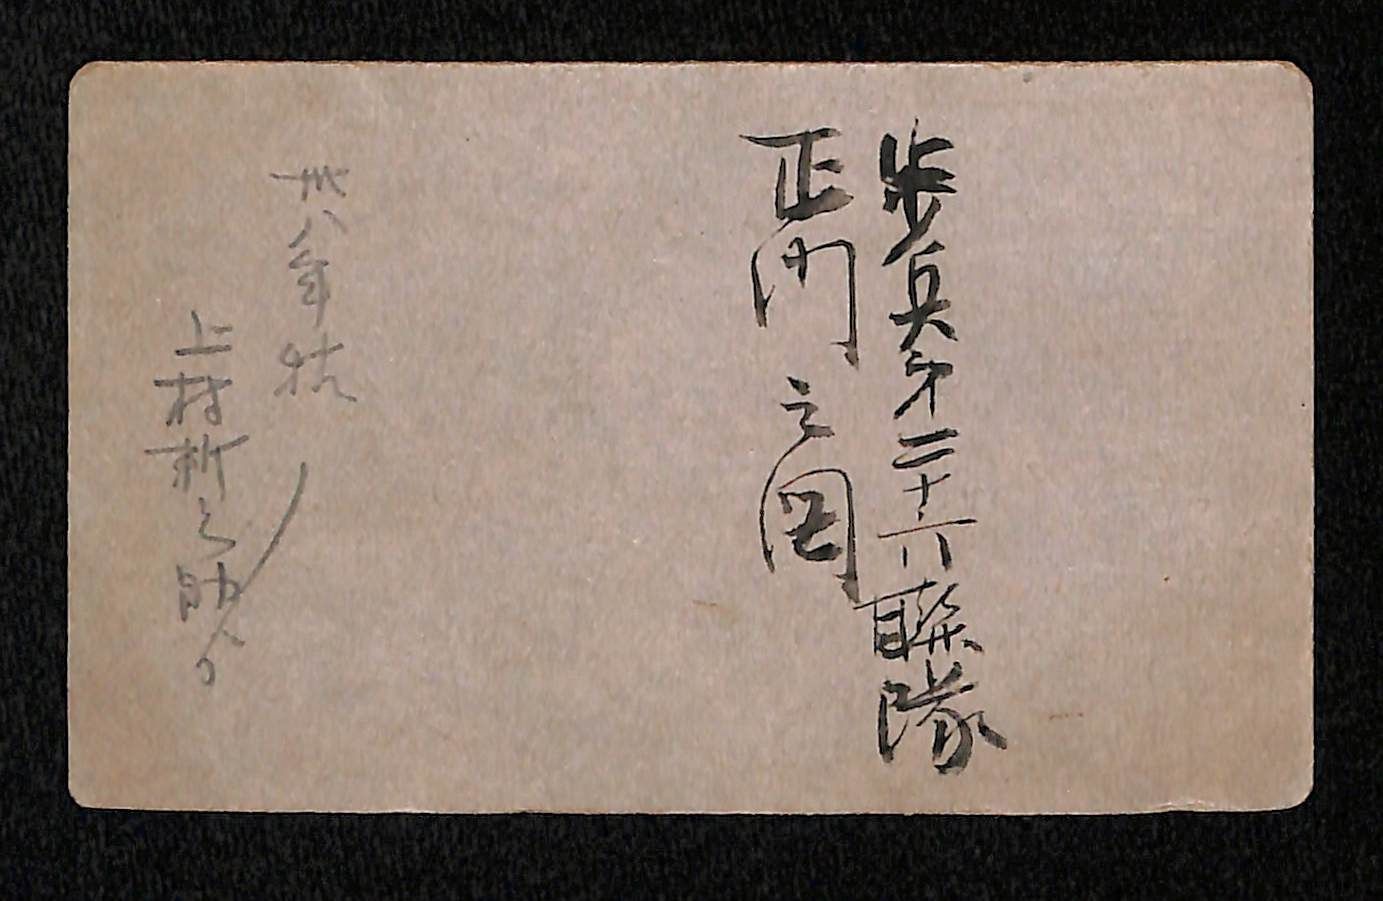 歩兵第二十六聯隊
正門之図
卅八年
上村新之助